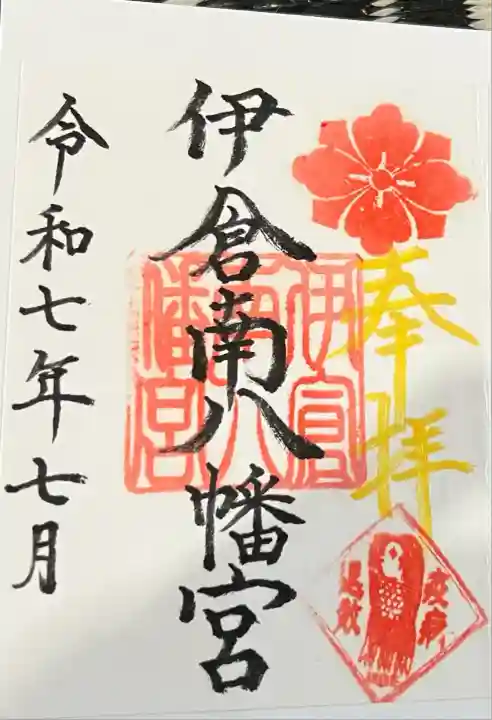 奉拝
伊倉南八幡宮
伊倉南八幡宮
令和七年七月